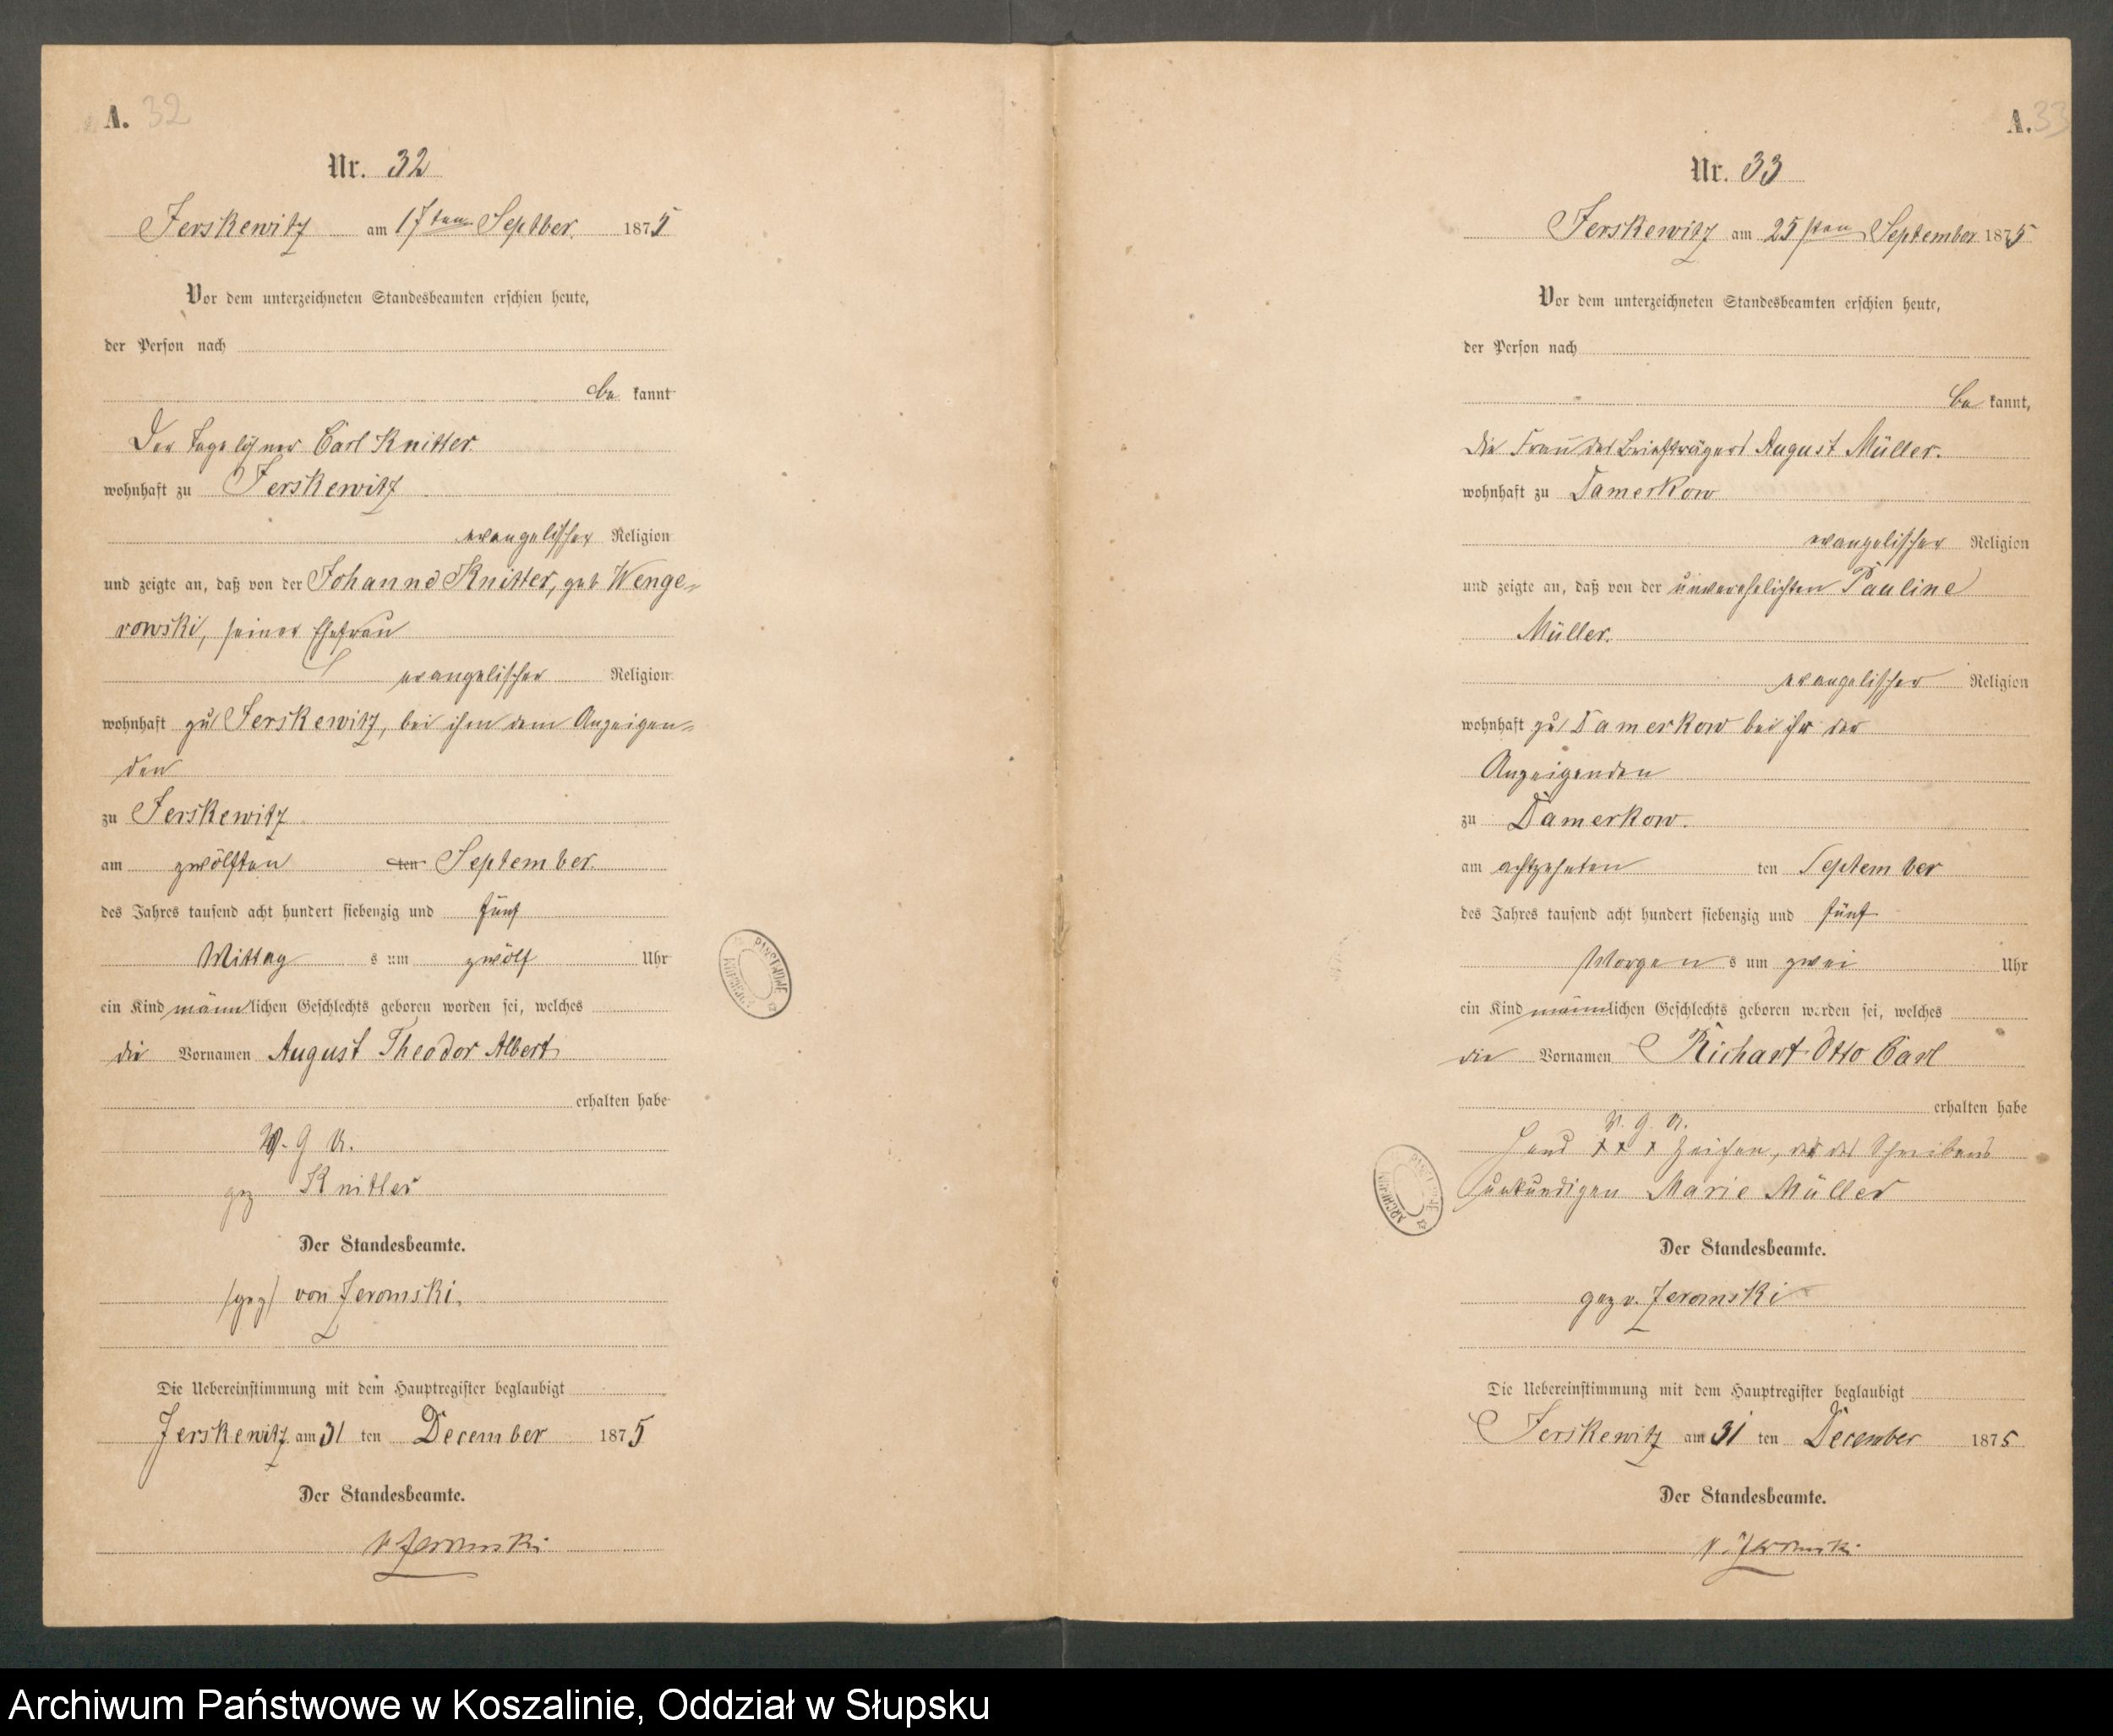 A. 32
Nr. 32
Jerskewitz am 17ten Septber. 1875
Vor dem unterzeichneten Standesbeamten erschien heute,
der Person nach
be kannt
Der Tagelöhner Carl Knitter
wohnhaft zu Jerskewitz
evangelischer Religion
und zeigte an, daß von der Johanne Knitter, geb Wenge-
rowski, seiner Ehefrau
evangelischer Religion
wohnhaft zu Jerskewitz, bei ihm dem Anzeigen-
den
zu Jerskewitz
am zwölften ten September.
des Jahres tausend acht hundert siebenzig und fünf
Mittag s um zwölf Uhr
ein Kind männlichen Geschlechts geboren worden sei, welches
die Vornamen August Theodor Albert
erhalten habe
V. g. u.
gez Knitter
Der Standesbeamte.
/gez/ von Jeromski.
Die Uebereinstimmung mit dem Hauptregister beglaubigt
Jerskewitz am 31 ten December 1875
Der Standesbeamte.
v. Jeromski
A. 33
Nr. 33
Jerskewitz am 25sten September 1875
Vor dem unterzeichneten Standesbeamten erschien heute,
der Person nach
be kannt,
die Frau des Briefträgers August Müller.
wohnhaft zu Damerkow
evangelischer Religion
und zeigte an, daß von der unverehelichten Pauline
Müller.
evangelischer Religion
wohnhaft zu Damerkow bei ihr der
Anzeigenden
zu Damerkow.
am achtzehnten ten September
des Jahres tausend acht hundert siebenzig und fünf
Morgen s um zwei Uhr
ein Kind männlichen Geschlechts geboren worden sei, welches
die Vornamen Richart Otto Carl
erhalten habe
V. g. u.
Hand x x x Zeichen, der des Schreibens
unkundigen Marie Müller
Der Standesbeamte.
gez v. Jeromski
Die Uebereinstimmung mit dem Hauptregister beglaubigt
Jerskewitz am 31 ten December 1875
Der Standesbeamte.
v. Jeromski
Archiwum Państwowe w Koszalinie, Oddział w Słupsku